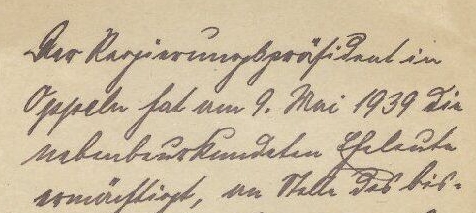 Der Regierungspräsident in
Oppeln hat am 9. Mai 1939 die
nebenbeurkundeten Eheleute
ermächtigt, an Stelle des bis-